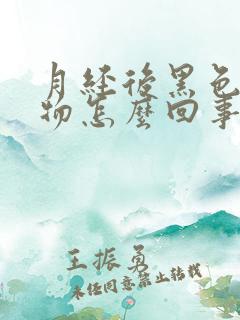 月经后黑色
物怎麼回事
王振勇
未经同意禁止转载